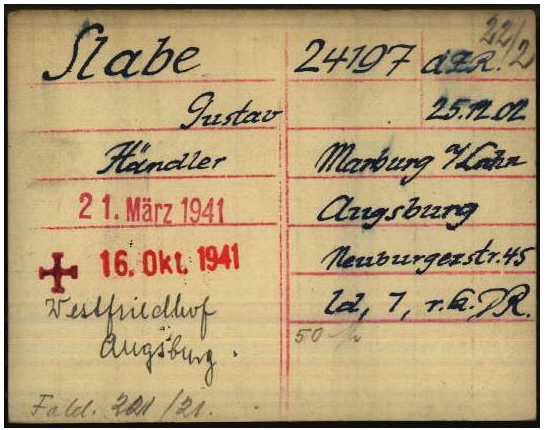 Slabe
Gustav
Händler
21. März 1941
16. Okt. 1941
Westfriedhof
Augsburg.
Fald. 201/21.
22/2
24197 AZR.
25.12.02
Marburg a/Lahn
Augsburg
Neuburgerstr. 45
ld, 7, r.k. DR.
50